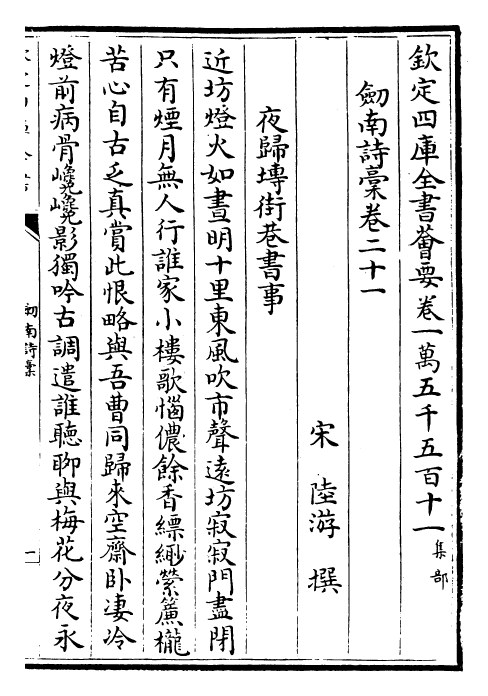 欽定四庫全書薈要卷一萬五千五百十一 集部
劒南詩槀卷二十一
宋 陸游 撰
夜歸塼街巷書事
近坊燈火如晝明十里東風吹市聲遠坊寂寂門盡閉
只有煙月無人行誰家小樓歌惱儂餘香縹緲縈簾櫳
苦心自古乏真賞此恨略與吾曹同歸來空齋卧凄冷
燈前病骨巉巉影獨吟古調遣誰聽聊與梅花分夜永
劒南詩槀
一